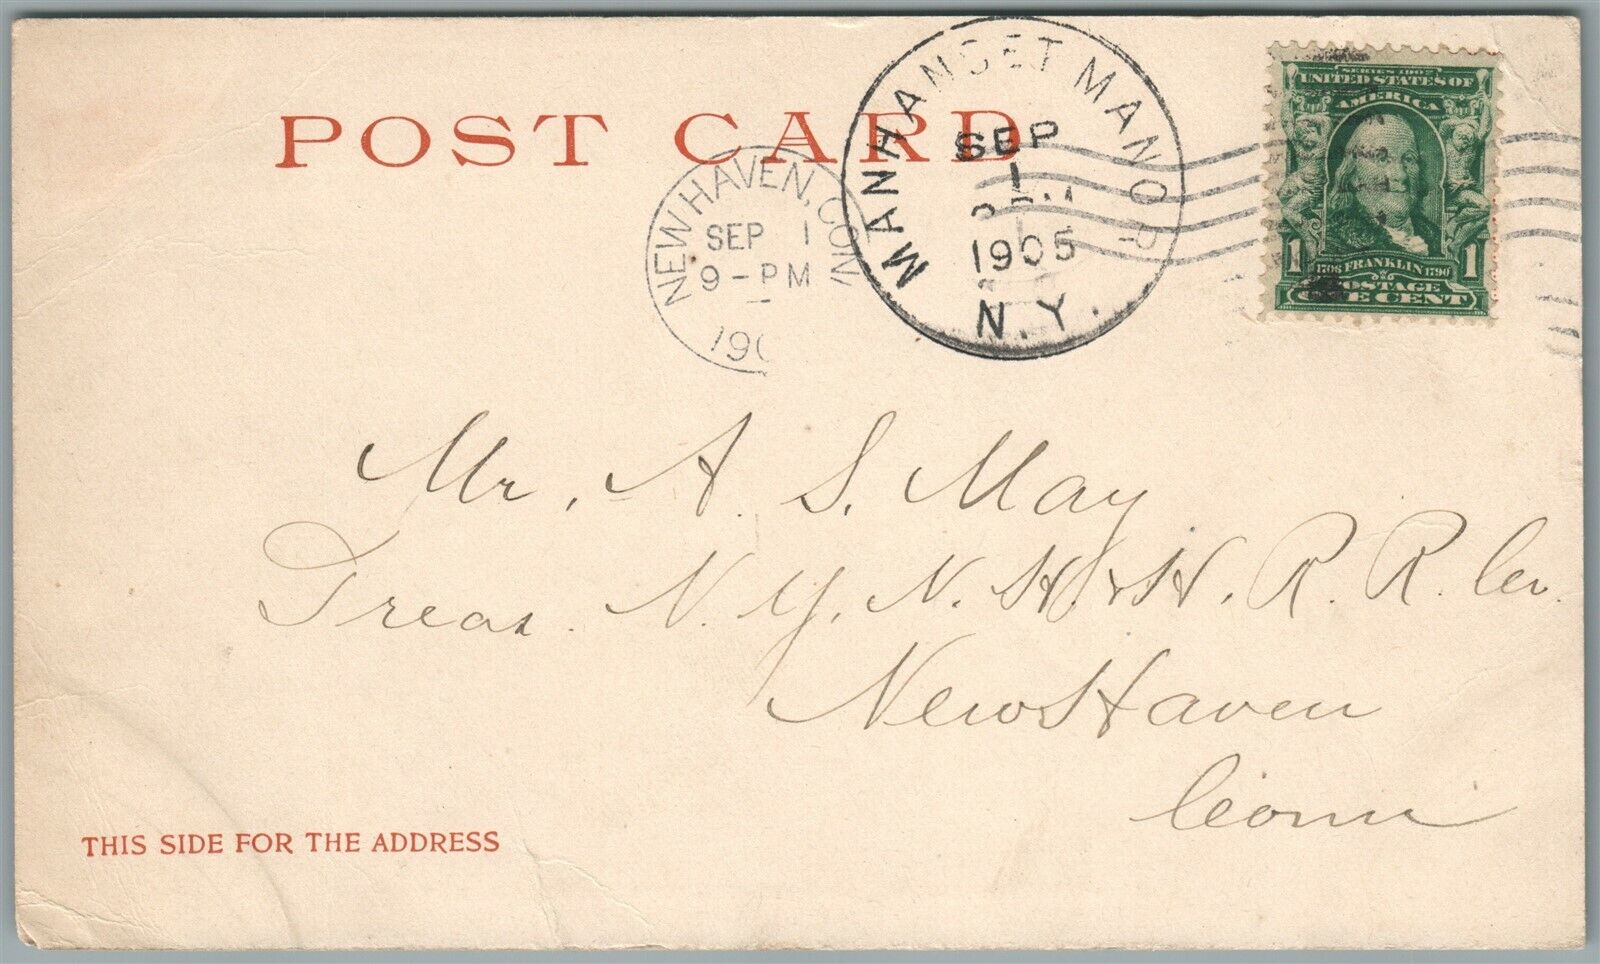 POST CARD
MANHANSET MANOR
SEP
1
1905
N.Y.
NEW HAVEN, CONN
SEP 1
9-PM
190
SERIES 1902
UNITED STATES OF
AMERICA
1 1706 FRANKLIN 1790 1
POSTAGE
ONE CENT
Mr. A. S. May
Treas. N. Y. N. H. & H. R. R. Co.
New Haven
Conn
THIS SIDE FOR THE ADDRESS